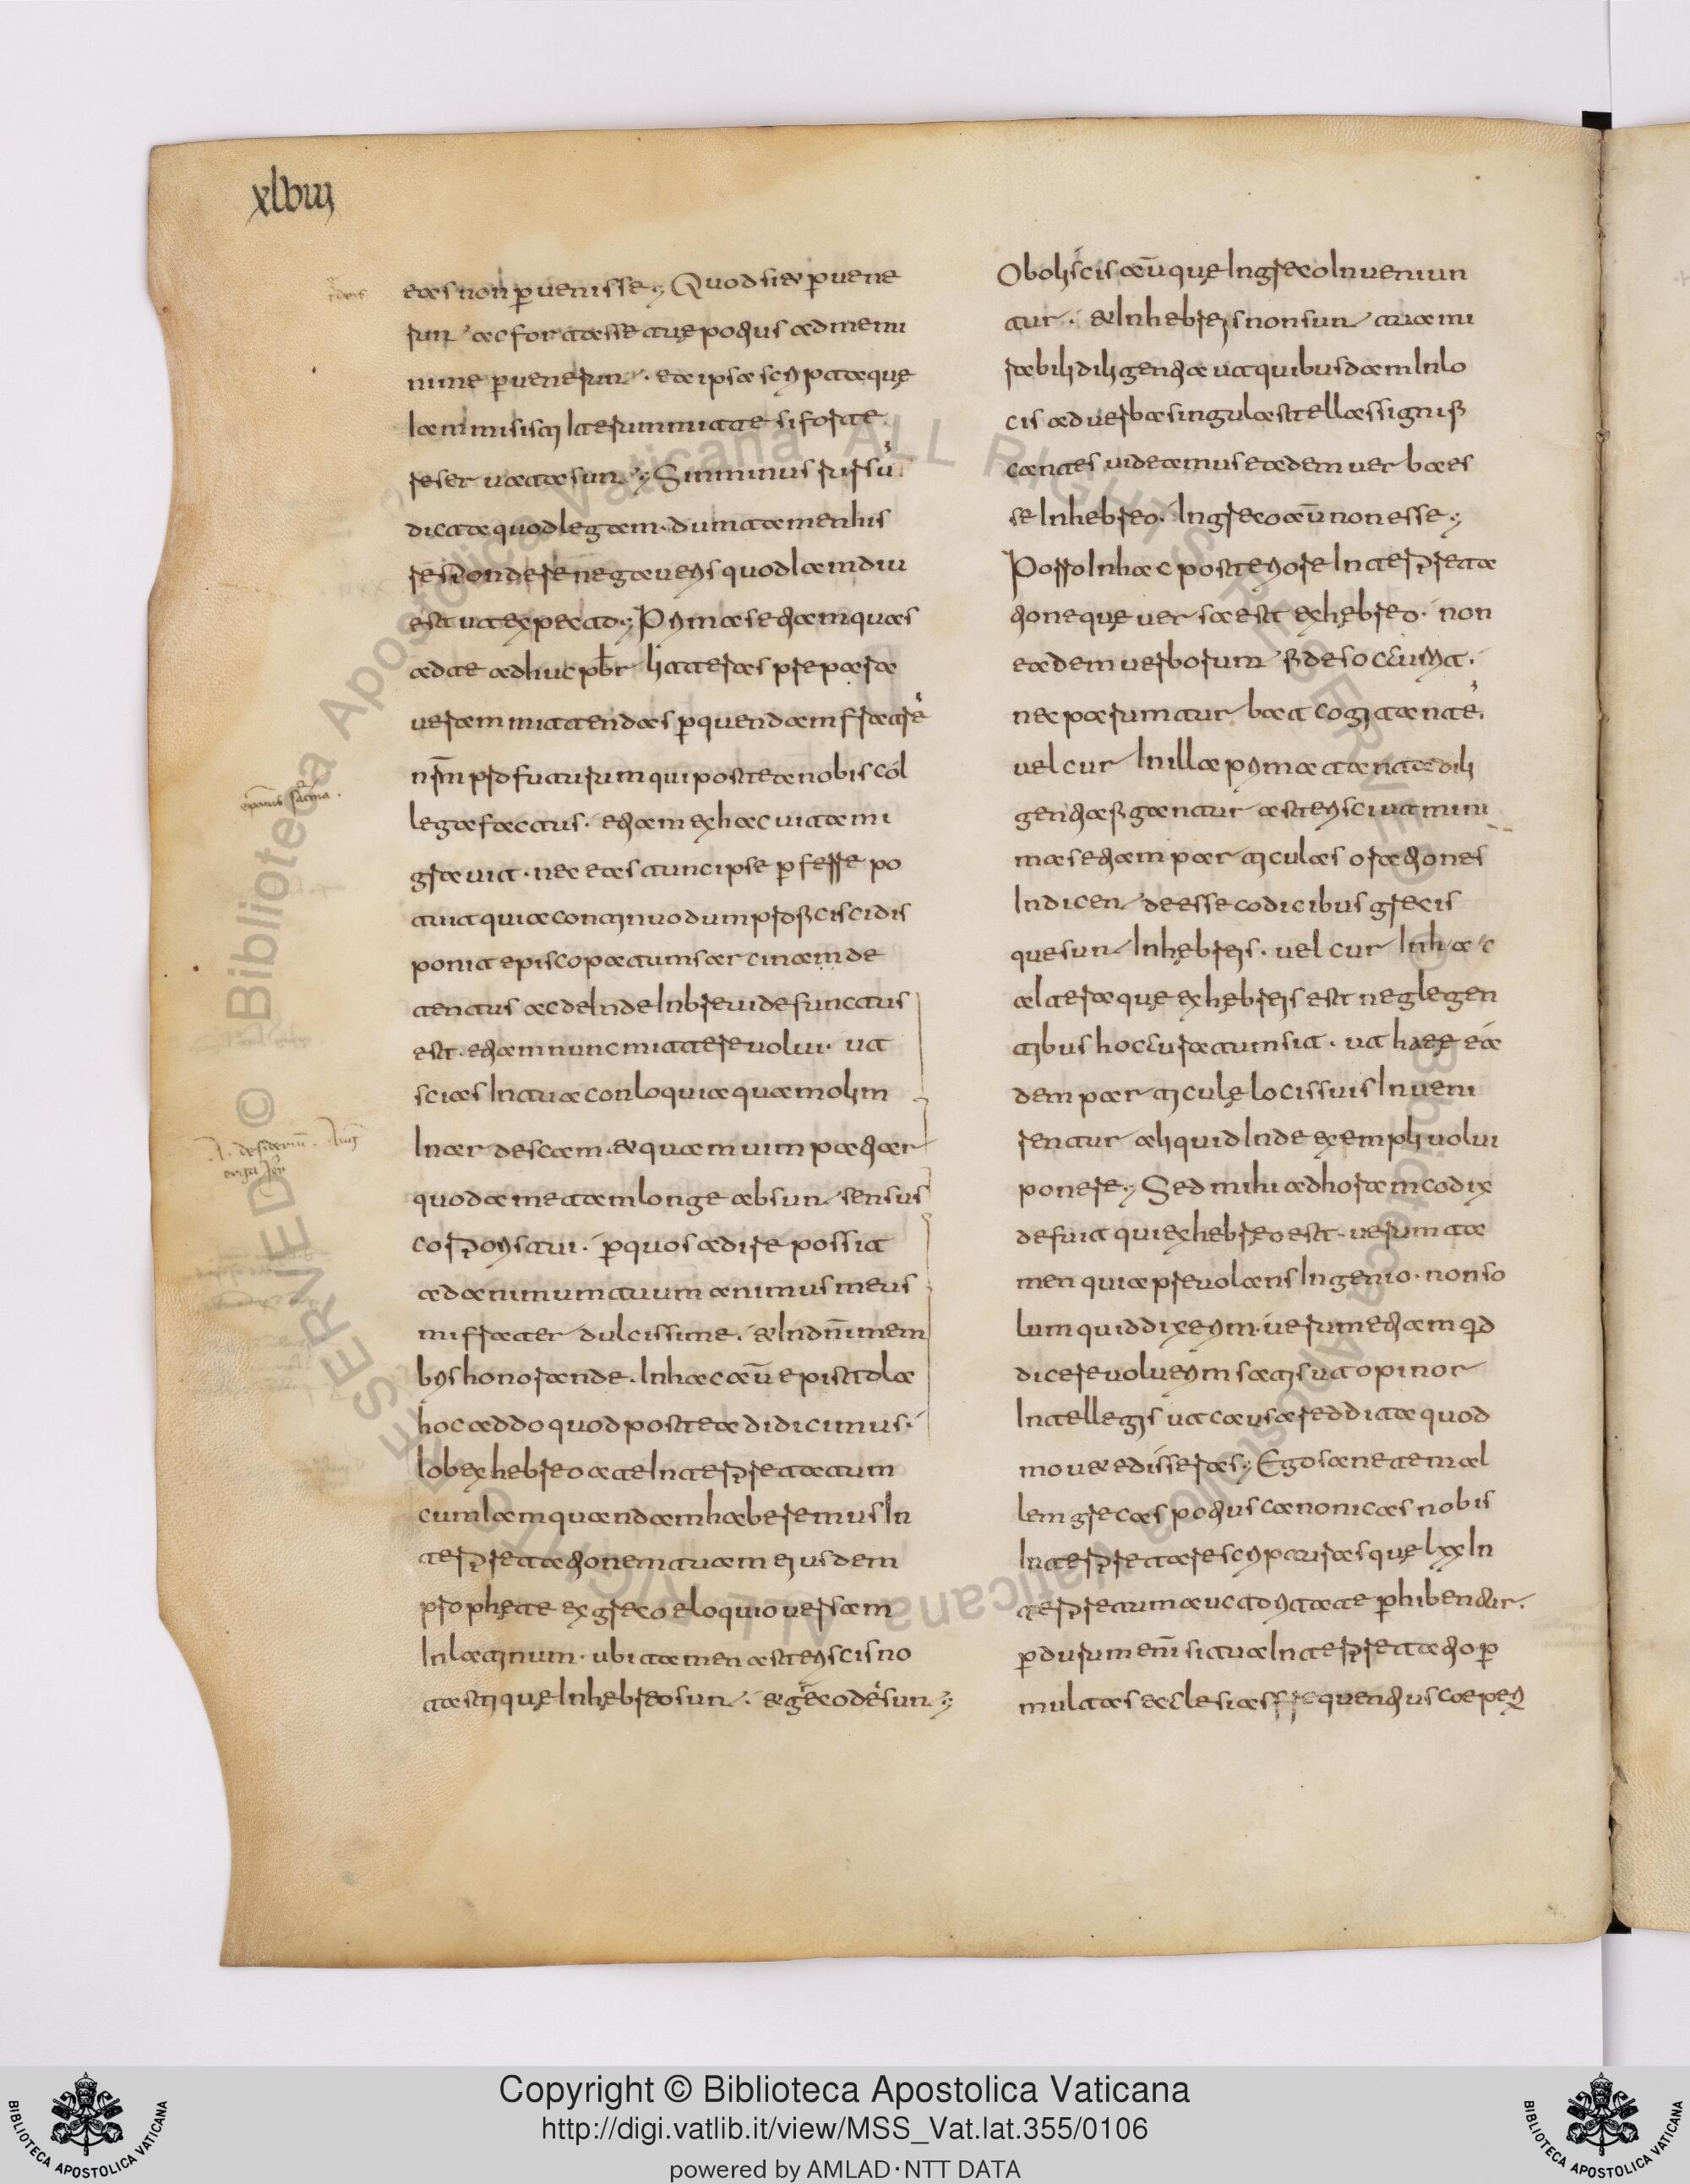 xlviiij
eas non p̄uenisse; Quod si & p̄uene
run̄ ac fortasse tuę potius ad me mi
nime p̄uenerun̄. ea ipsa scripta quę
iam misisti iterum mitte si forte
reseruata sun̄; Sin minus rursū
dicta quod legam. dum tamen his
respondere ne graueris quod iam diu
est ut expecto; Primas etiam quas
ad te adhuc pb̄r litteras pręparā
ueram mittendas p̄ quendam fratrē
nrm̄ profuturum qui postea nobis col
lega factus. etiam ex hac uita mi
grauit. nec eas tunc ipse p̄ferre po
tuit quia continuo dum proficisci dis
ponit episcopatu sarcinam de
tentus ac deinde in breui defunctus
est. etiam nunc mittere uolui. ut
scias in tua conloquia quam olim
inardescam. & quam uim patiar
quod a me tam longe absun̄ sensus
corporis tui. p̄ quos adire possit
ad animum tuum animus meus
mi frater dulcissime. & in dn̄i mem
bris honorande. In hac aū epistola
hoc addo quod postea didicimus.
Iob ex hebreo a te interpretatum
cum iam quandam haberemus in
terpretationem tuam eiusdem
prophętę ex greco eloquio uersam
in latinum. ubi tamen asteriscis no
tasti quę in hebreo sun̄. & greco desun̄;
Obeliscis aū quę in greco inueniun
tur. & in hebreis non sun̄ tam mi
rabili diligentia ut quibusdam in lo
cis ad uerba singula stellas signifi
cantes uideamus eadem uerba es
se in hebreo. in greco aū non esse;
Porro in hac posteriore interpreta
tione quę uersa est ex hębreo. non
eadem uerborum fides occurrit.
nec parum turbat cogitantē.
uel cur in illa prima tanta dili
gentia figantur asterisci ut mini
mas etiam particulas orationes
indicen̄ deesse codicibus grecis
que sun̄ in hębreis. uel cur in hac
altera quę ex hębreis est neglegen
tius hoc curatum sit. ut haec ea
dem particulę locis suis inueni
rentur aliquid inde exempli uolui
ponere; Sed mihi ad horam codix
defuit qui ex hebręo est. uerum ta
men quia preuolans ingenio. non so
lum quid dixerim. uerum etiam qd
dicere uoluerim satis ut opinor
intellegis ut causa reddita quod
mouet edisseras; Ego sane te mal
lem grecas potius canonicas nobis
interpretari scripturas quę lxx in
terpretum auctoritate p̄hibentur.
p̄durum enī si tua interpretatio p̄
multas ecclesias frequentius coeperit